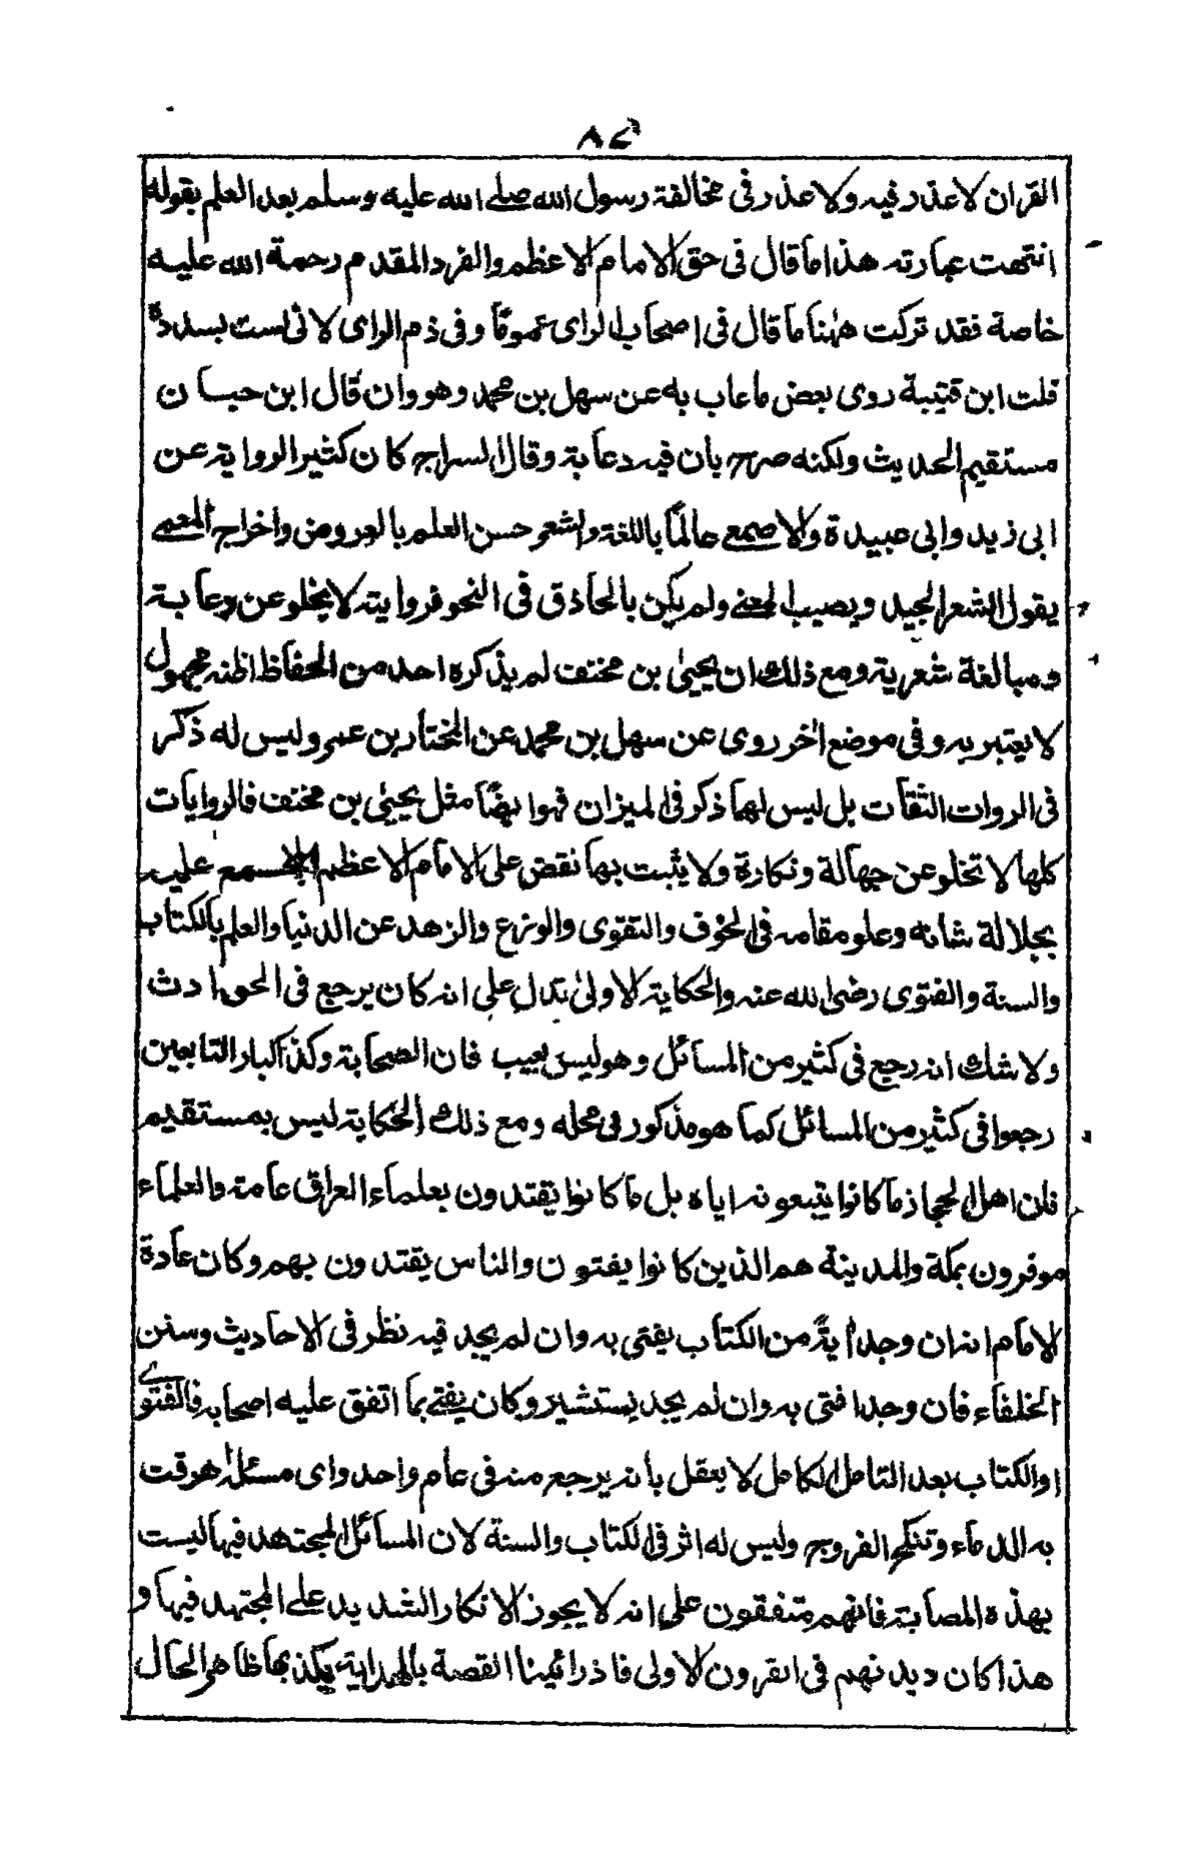 القران لا عذر فيه ولا عذر فى مخالفة رسول الله صلے الله عليه وسلم بعد العلم بقوله
انتهت عبارته هذا ما قال فى حق الامام الاعظم والفرد المقدم رحمة الله عليه
خاصة فقد تركت ههنا ما قال فى اصحاب الراى عموما وفى ذم الراى لانى لست بسدده
قلت ابن قتيبة روى بعض ما عاب به عن سهل بن محمد وهو وان قال ابن حبان
مستقيم الحديث ولكنه صرح بان فيه دعابة وقال السراج كان كثير الرواية عن
ابى زيد وابى عبيدة والاصمعے عالماً باللغة والشعر حسن العلم بالعروض واخراج المعمے
يقول الشعر الجيد ويصيب المعنے ولم يكن بالحاذق فى النحو فروايته لا يخلو عن دعابة
ومبالغة شعرية ومع ذلك ان يحيىٰ بن مخنف لم يذكره احد من الحفاظ اظنه مجهول
لا يعتبر به وفى موضع اٰخر روى عن سهل بن محمد عن المختار بن عمر وليس له ذكر
فى الروات الثقات بل ليس لهما ذكر فى الميزان فهو ايضاً مثل يحيىٰ بن مخنف فالروايات
كلها لا تخلو عن جهالة ونكارة ولا يثبت بها نقض على الامام الاعظم المجمع عليه
بجلالة شانه وعلو مقامه فى الخوف والتقوى والورع والزهد عن الدنيا والعلم بالكتاب
والسنة والفتوى رضى الله عنه والحكاية الاولىٰ تدل على انه كان يرجع فى الحوادث
ولا شك انه رجع فى كثير من المسائل وهو ليس بعيب فان الصحابة وكذا كبار التابعين
رجعوا فى كثير من المسائل كما هو مذكور فى محله ومع ذلك الحكاية ليس بمستقيم
فان اهل الحجاز ما كانوا يتبعونه اياه بل ما كانوا يقتدون بعلماء العراق عامة والعلماء
موفرون بمكة والمدينة هم الذين كانوا يفتون والناس يقتدون بهم وكان عادة
الامام انه ان وجد اية من الكتاب يفتى به وان لم يجد فيه نظر فى الاحاديث وسنن
الخلفاء فان وجد افتى به وان لم يجد يستشير وكان يفتے بما اتفق عليه اصحابه فالفتوے
او الكتاب بعد التامل الكامل لا يعقل بانه يرجع منه فى عام واحد واى مسئلة اهرقت
به الدماء وتنكح الفروج وليس له اثر فى الكتاب والسنة لان المسائل المجتهد فيها ليست
بهذه المصابة فانهم متفقون على انه لا يجوز الانكار الشديد علے المجتهد فيها و
هذا كان ديدنهم فى القرون الاولى فاذا رائينا القصة بالدراية يكذبها ظاهر الحال